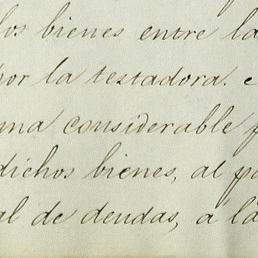 los bienes entre la
por la testadora. e
ma considerable f
dichos bienes, al pa
al de deudas, a la